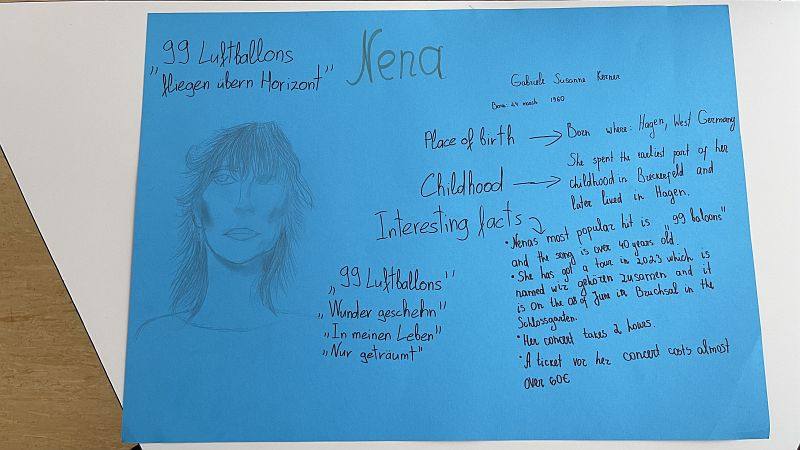 99 Luftballons
"fliegen übern Horizont"
Nena
Gabriele Susanne Kerner
Born: 24 march 1960
Place of birth → Born where: Hagen, West Germany
Childhood → She spent the earliest part of her
childhood in Breckerfeld and
later lived in Hagen.
Interesting facts
• Nenas most popular hit is "99 baloons"
and the song is over 40 years old.
• She has got a tour in 2023 which is
named wir gehören zusamen and it
is on the 08 of June in Bruchsal in the
Schlossgarten.
• Her concert takes 2 hours.
• A ticket vor her concert costs almost
over 60€
„99 Luftballons"
„Wunder geschehn"
„In meinen Leben"
„Nur geträumt"